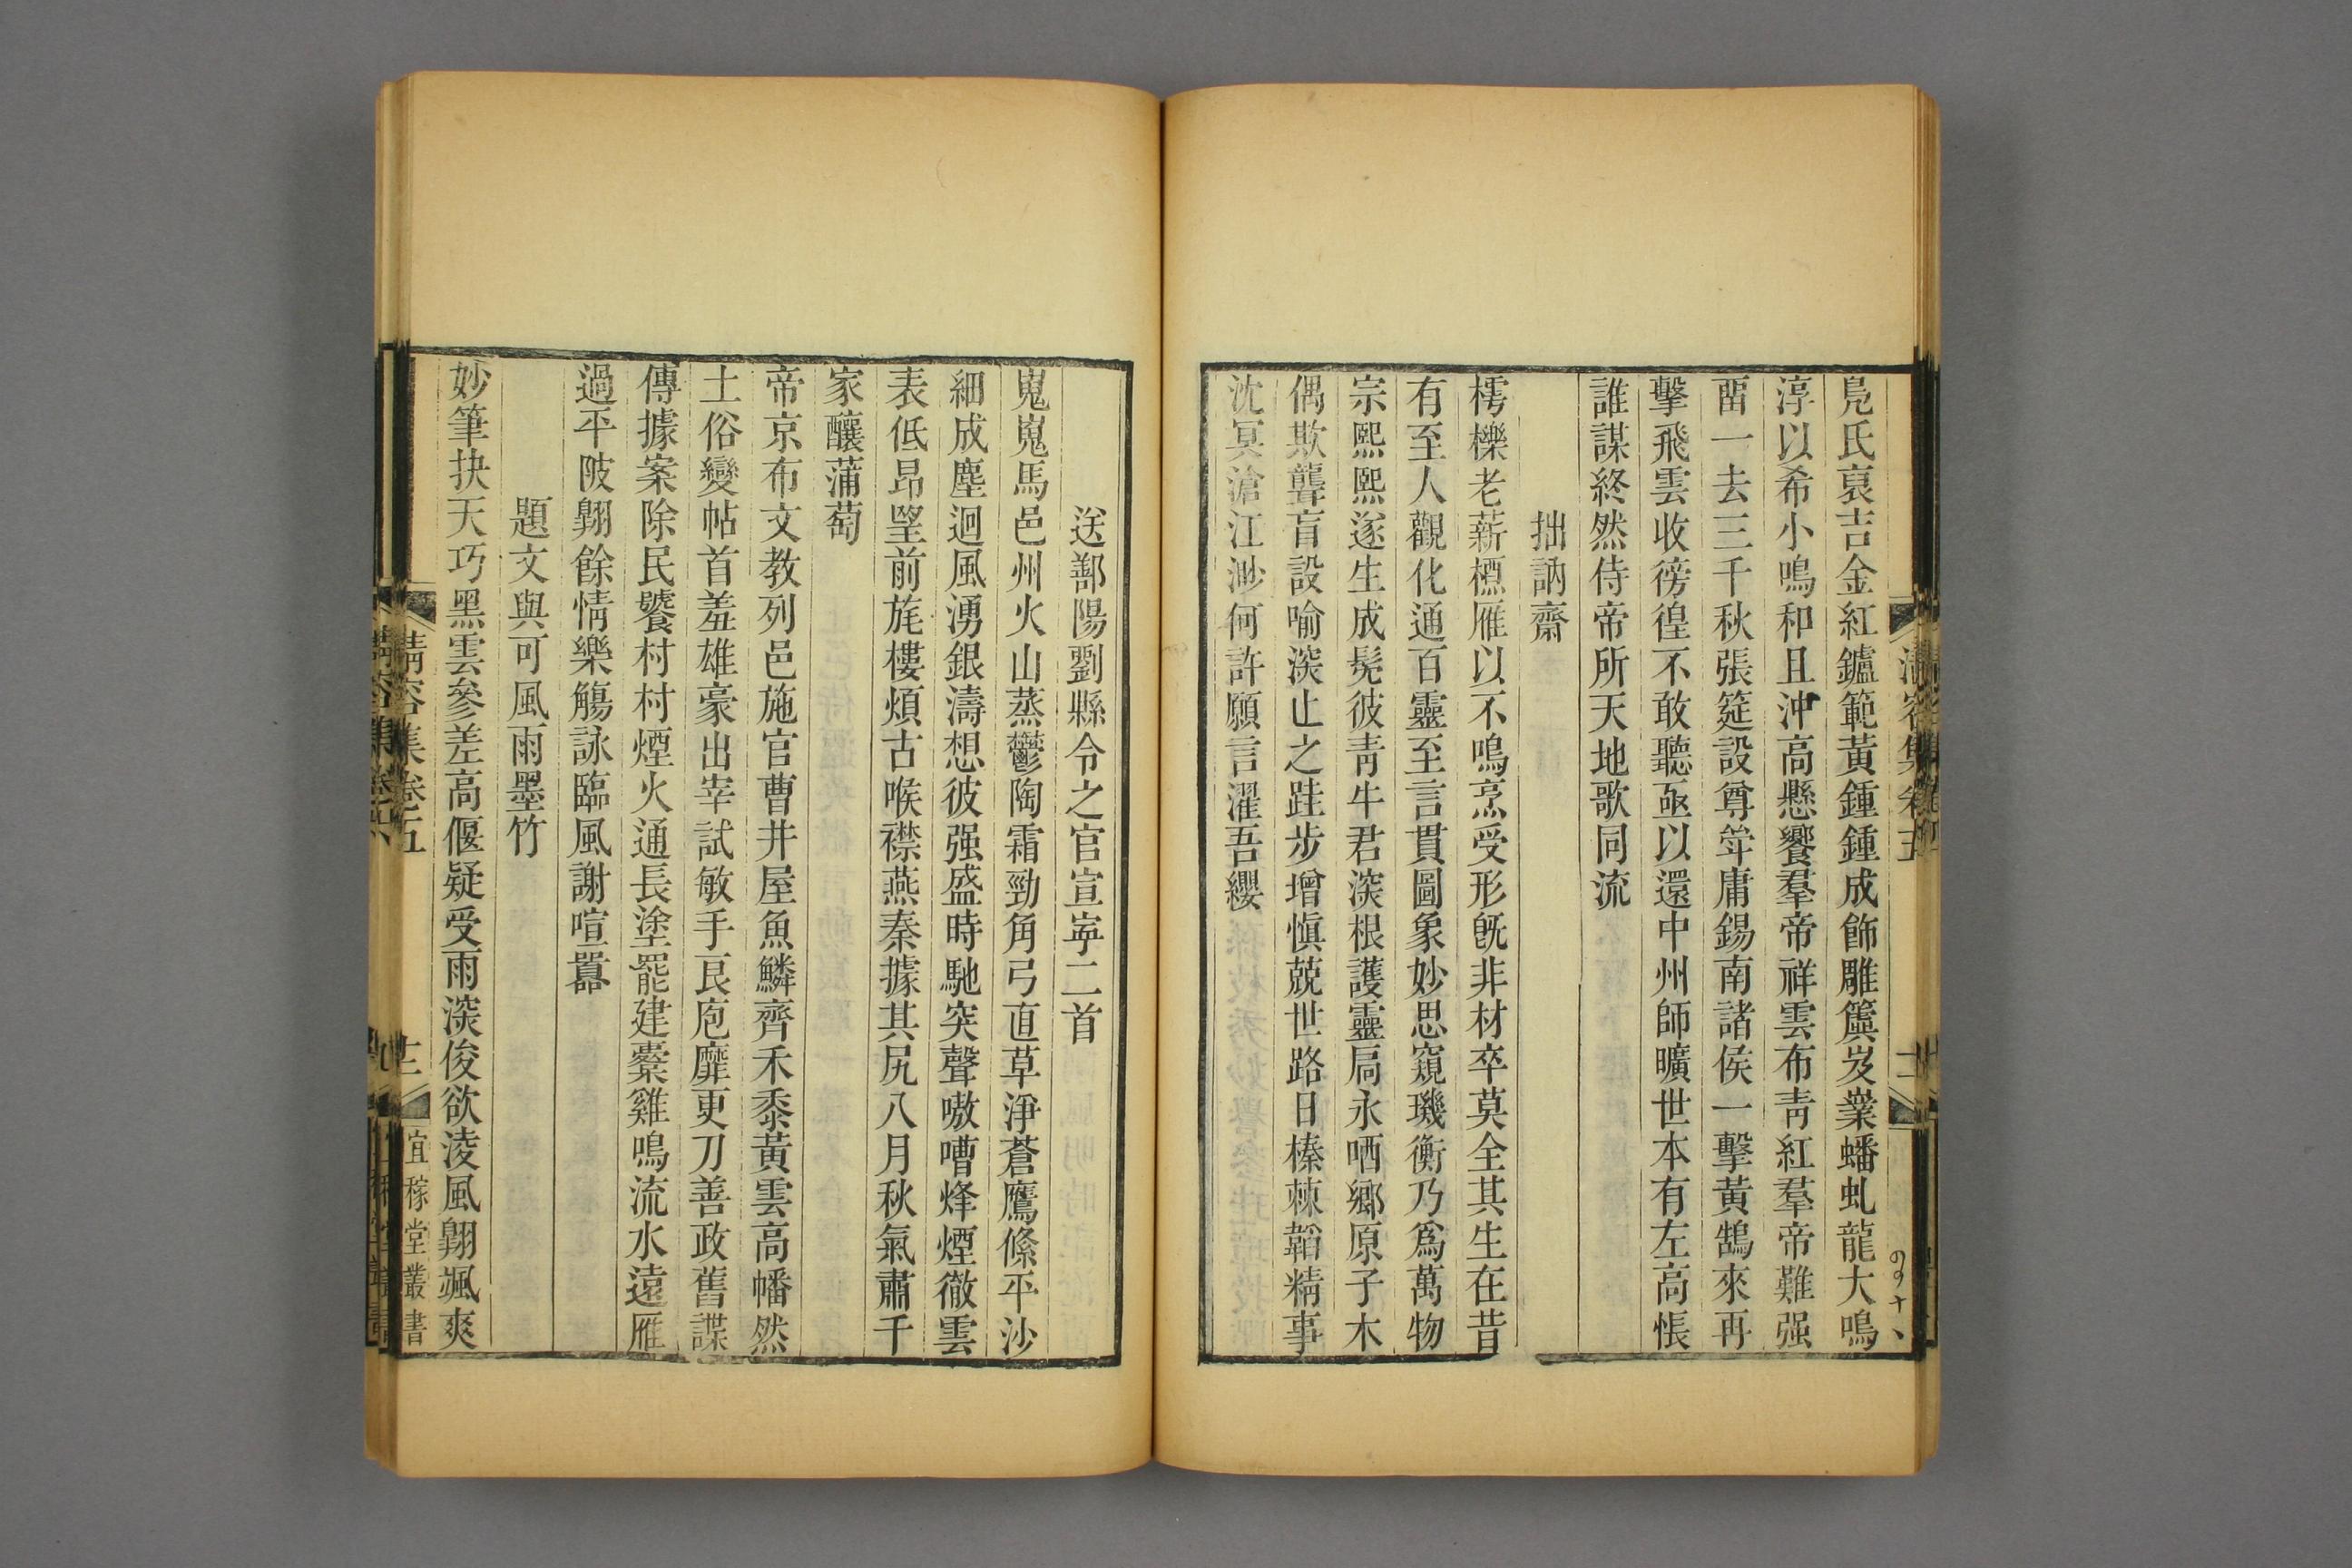 鳧氏裒吉金紅鑪範黃鍾鍾成飾雕簴岌嶪蟠虬龍大鳴
淳以希小鳴和且沖高懸饗羣帝祥雲布靑紅羣帝難强
畱一去三千秋張筵設尊斝庸錫南諸侯一擊黃鵠來再
擊飛雲收徬徨不敢聽亟以還中州師曠世本有左高悵
誰謀終然侍帝所天地歌同流
拙訥齋
樗櫟老薪槱雁以不鳴烹受形旣非材卒莫全其生在昔
有至人觀化通百靈至言貫圖象妙思窺璣衡乃爲萬物
宗熙熙遂生成髡彼靑牛君深根護靈扃永哂鄉原子木
偶欺聾盲設喻深止之跬步增愼兢世路日榛棘韜精事
沈冥滄江渺何許願言濯吾纓
送鄱陽劉縣令之官宣寧二首
嵬嵬馬邑州火山蒸鬱陶霜勁角弓直草淨蒼鷹絛平沙
細成塵迴風湧銀濤想彼强盛時馳突聲嗷嘈烽煙徹雲
表低昂望前旄樓煩古喉襟燕秦據其尻八月秋氣肅千
家釀蒲萄
帝京布文教列邑施官曹井屋魚鱗齊禾黍黃雲高幡然
土俗變帖首羞雄豪出宰試敏手良庖靡更刀善政舊諜
傳據案除民饕村村煙火通長塗罷建櫜雞鳴流水遠雁
過平陂翺餘情樂觴詠臨風謝喧嚻
題文與可風雨墨竹
妙筆抉天巧黑雲參差高偃疑受雨深俊欲淩風翺颯爽
淸容集卷五
十三
宜稼堂叢書